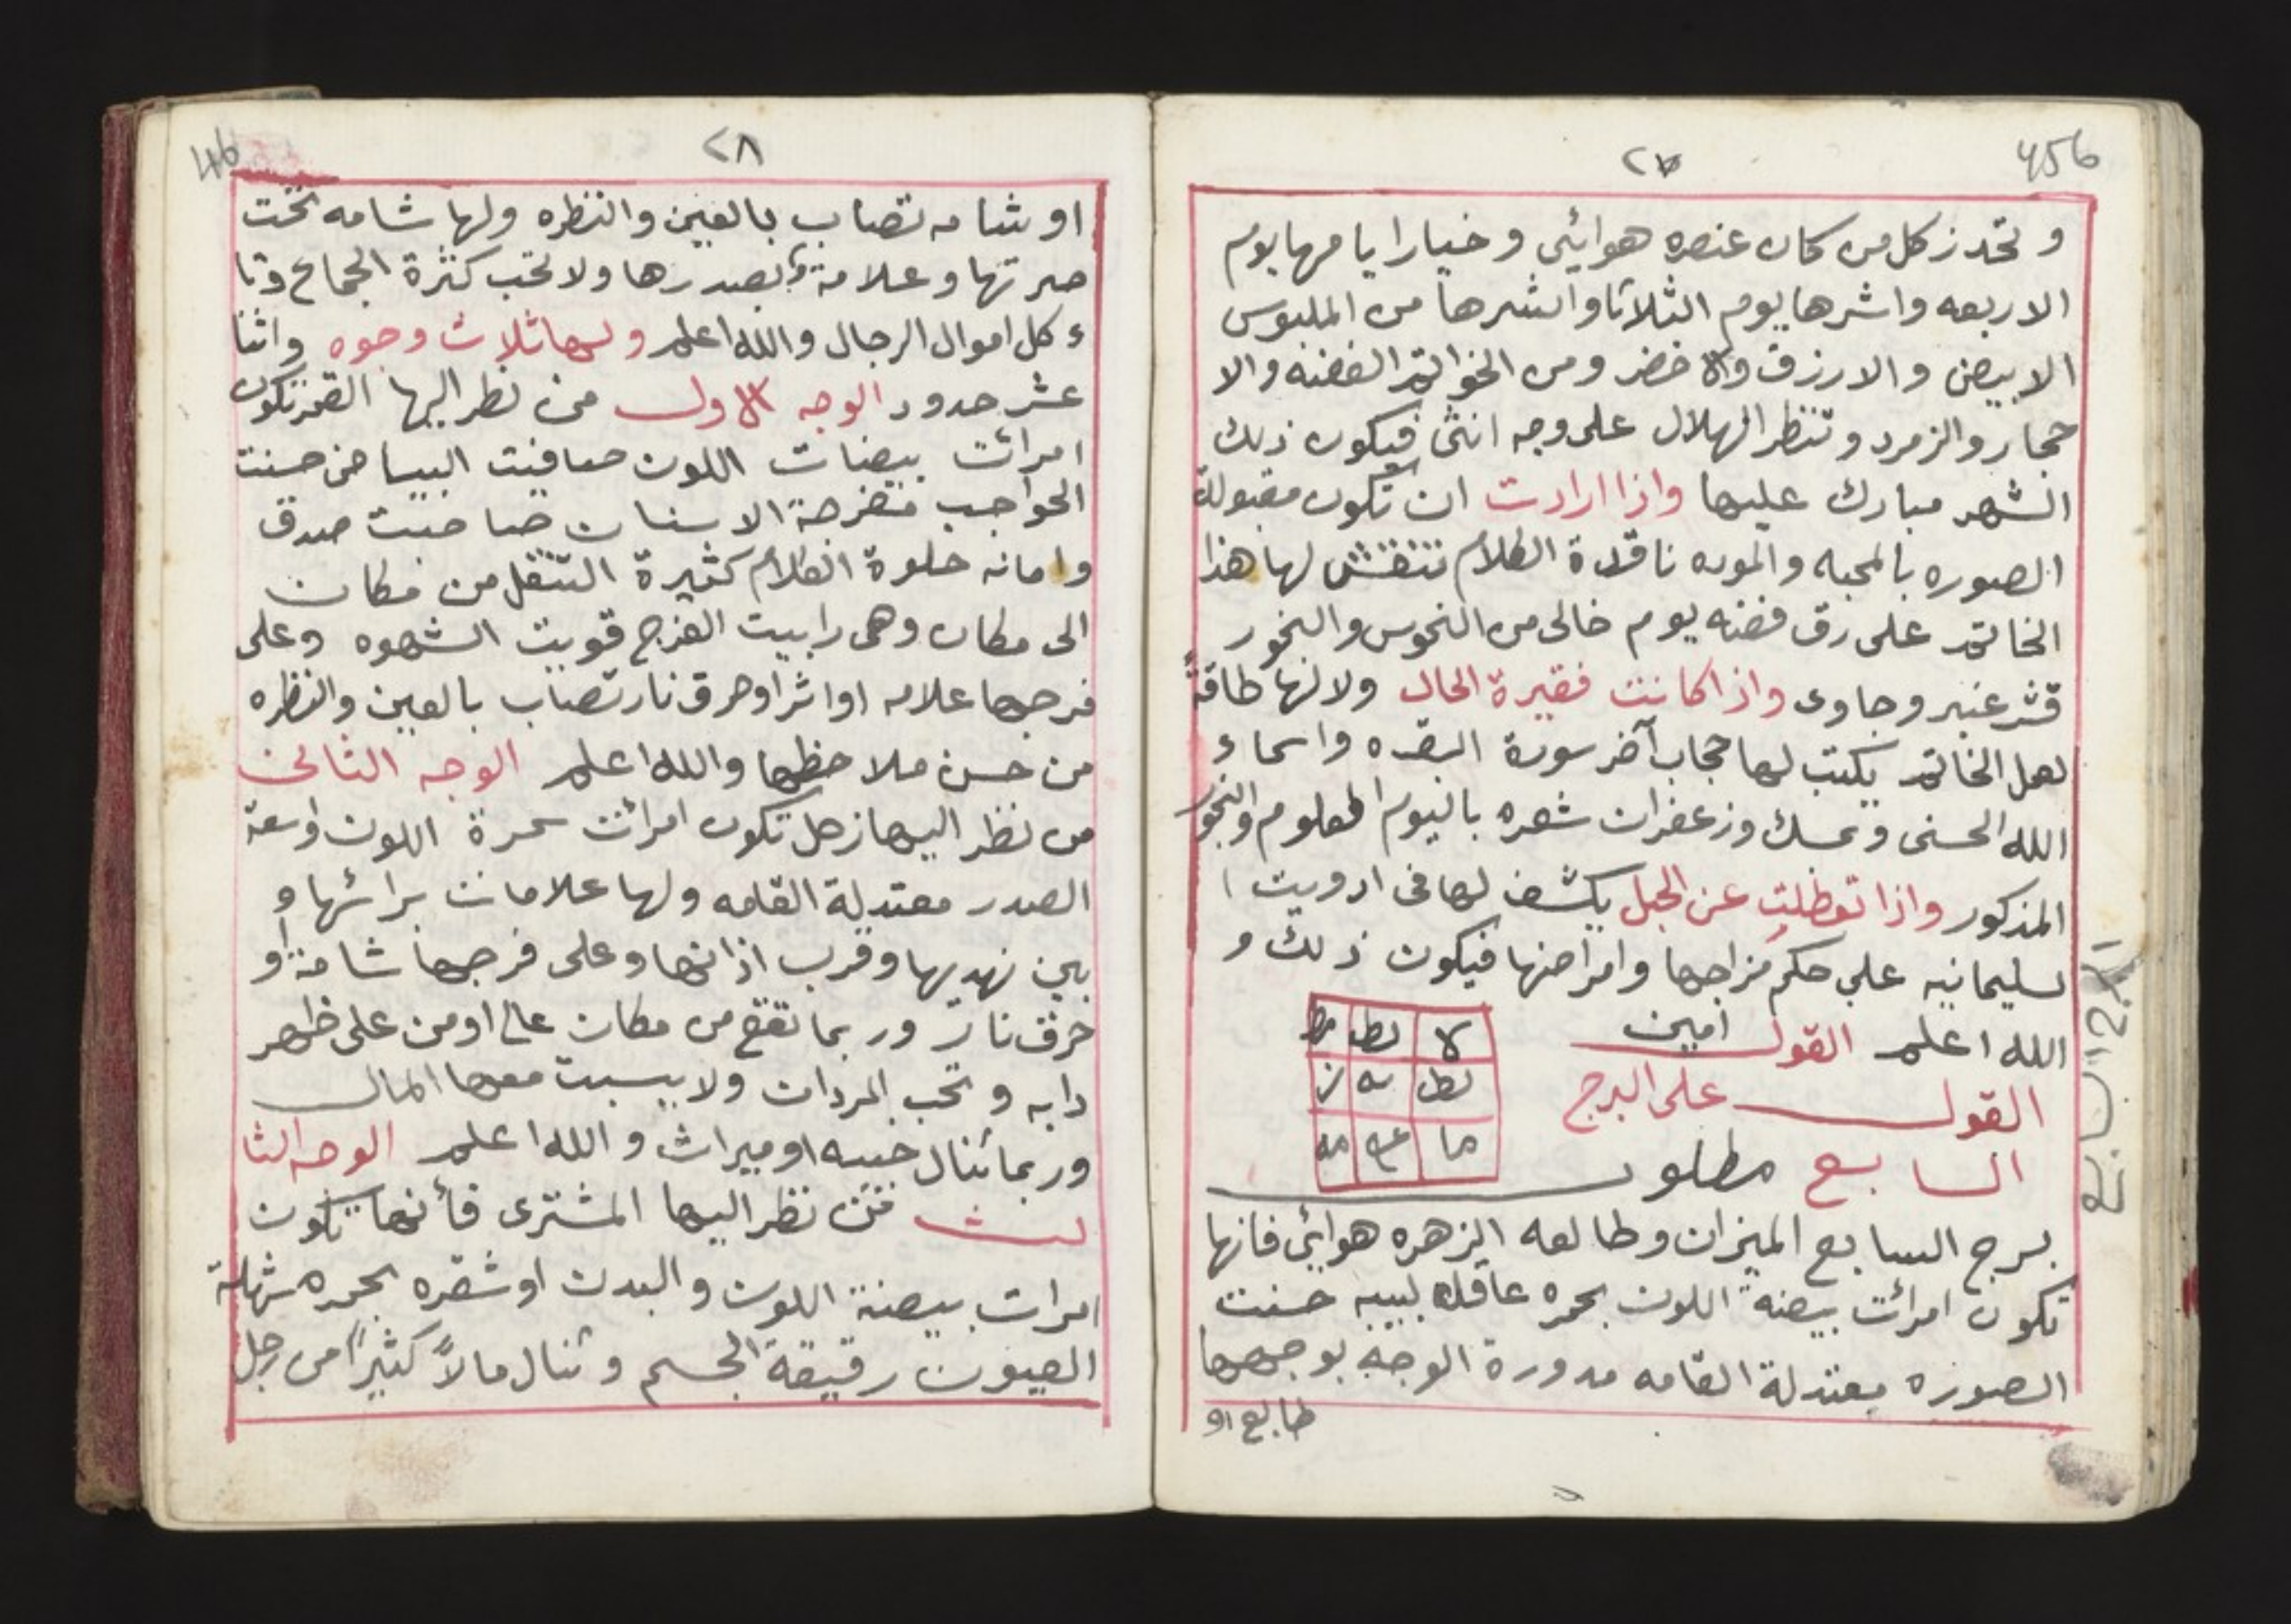 456
٢٧
و تحدز كل من كان عنصره هوائي و خيار ايامها يوم
الاربعه واشرها يوم الثلاثا وابشرها من الملبوس
الابيض والازرق والاخضر ومن الخواتم الفضه والا
حجار والزمرد وتنظر الهلال على وجه انثى فيكون ذلك
الشهر مبارك عليها واذا ارادت ان تكون مقبولة
الصوره بالمحبه والموده ناقدة الكلام تنقش لها هذا
الخاتم على رق فضه يوم خالى من النحوس والبخور
قشر عنبر وجاوى واذا كانت فقيرة الحال ولا لها طاقة
لعمل الخاتم يكتب لها حجاب آخر سورة البقره واسماء
الله الحسنى ومسك وزعفران شعره باليوم المعلوم والبخور
المذكور واذا تعطلت عن الحبل يكشف لها فى ادويت ا
لسليمانيه على حكم مزاجها وامراضها فيكون ذلك و
الله اعلم القول امين
القول على البرج
السابع مطلو
لا لط
لط يه ز
ما مه
برج السابع الميزان وطالعه الزهره هوائي فانها
تكون امرأت بيضة اللون بحمره عاقله لبيبه حسنت
الصوره معتدلة القامه مدورة الوجه بوجهها
طابع او
السابع
46
٢٨
او شامه تصاب بالعين والنظره ولها شامه تحت
صرتها وعلامة بصدرها ولا تحب كثرة الجماع وتا
ء كل اموال الرجال والله اعلم ولها ثلاث وجوه واثنا
عشر حدود الوجه الاول من نظر اليها القمر تكون
امرائت بيضات اللون صافيت البياض حسنت
الحواجب مفرجة الاسنان صاحبت صدق
وامانه حلوة الكلام كثيرة التنقل من مكان
الى مكان وهى رابيت الفرج قويت الشهوه وعلى
فرجها علامه او اثر او حرق نار تصاب بالعين والنظره
من حسن ملاحظها والله اعلم الوجه الثانى
من نظر اليها زحل تكون امرائت سمرة اللون واسعة
الصدر معتدلة القامه ولها علامات برائسها و
بين نهديها وقرب اذانها وعلى فرجها شامة او
حرق نار وربما تقع من مكان عالى او من على ظهر
دابه وتحب المردان ولا يبيت معها المال
وربما تنال خبيه او ميراث والله اعلم الوجه الثا
لث فمن نظر اليها المشترى فأنها تكون
امرات بيضة اللون والبدن او شقره بحمره شهلة
العيون رقيقة الجسم وتنال مالاً كثيراً من رجل